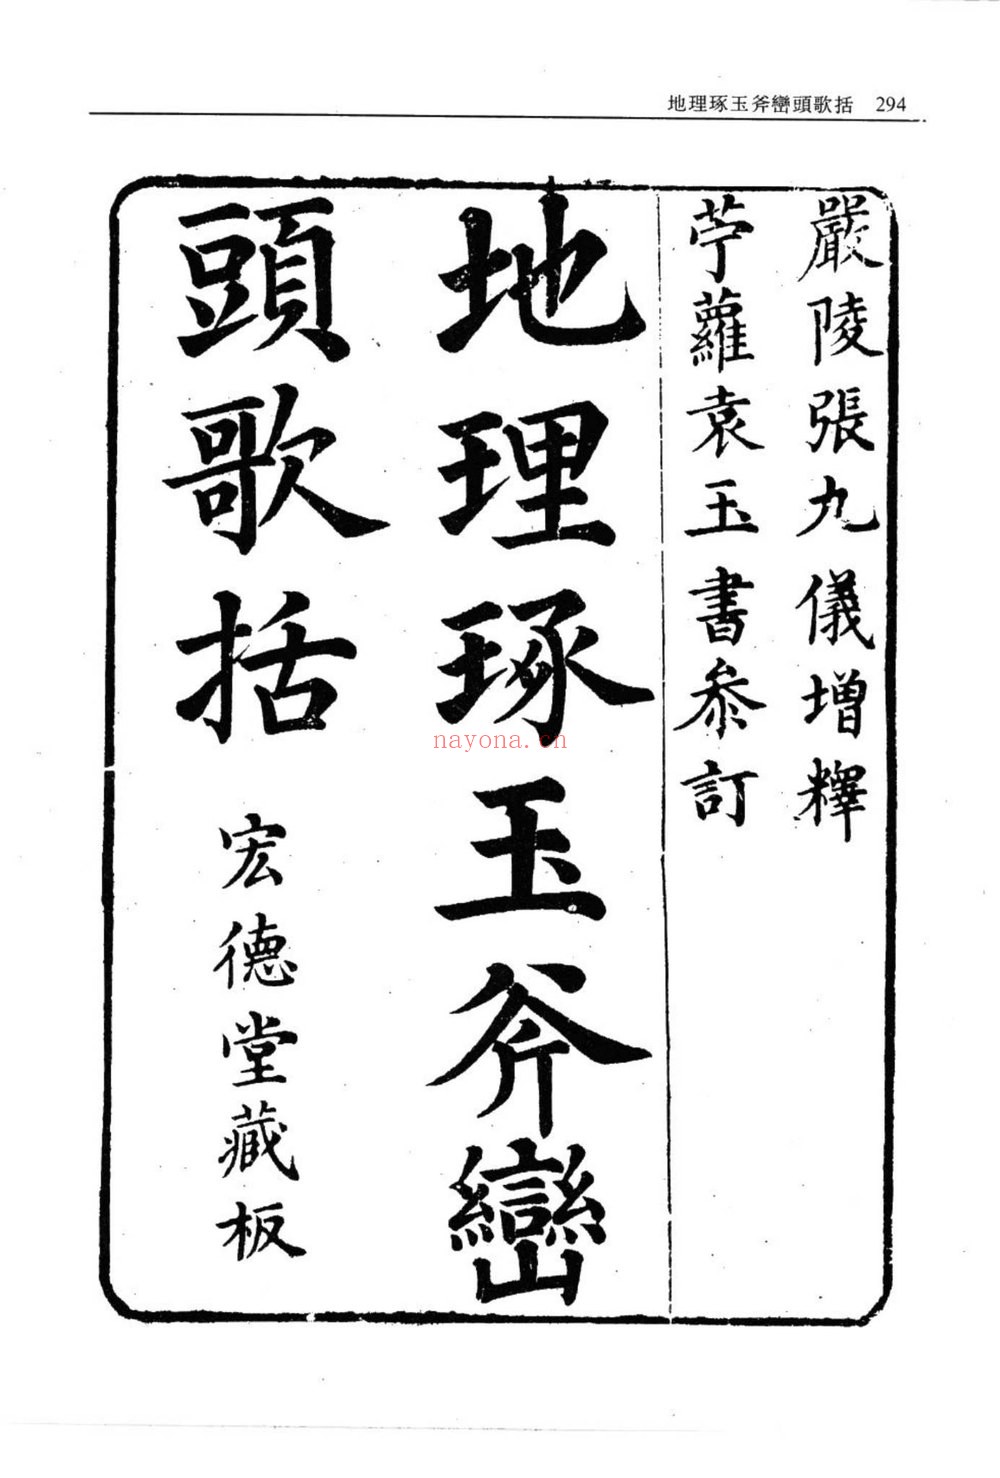 地理琢玉斧巒頭歌括 294
嚴陵張九儀增釋
苧蘿袁玉書參訂
地理琢玉斧巒
頭歌括
宏德堂藏板
nayona.cn